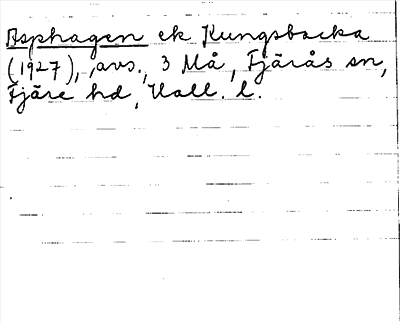 Asphagen ek Kungsbacka
(1927), avs., 3 Må, Fjärås sn,
Fjäre hd, Hall. l.